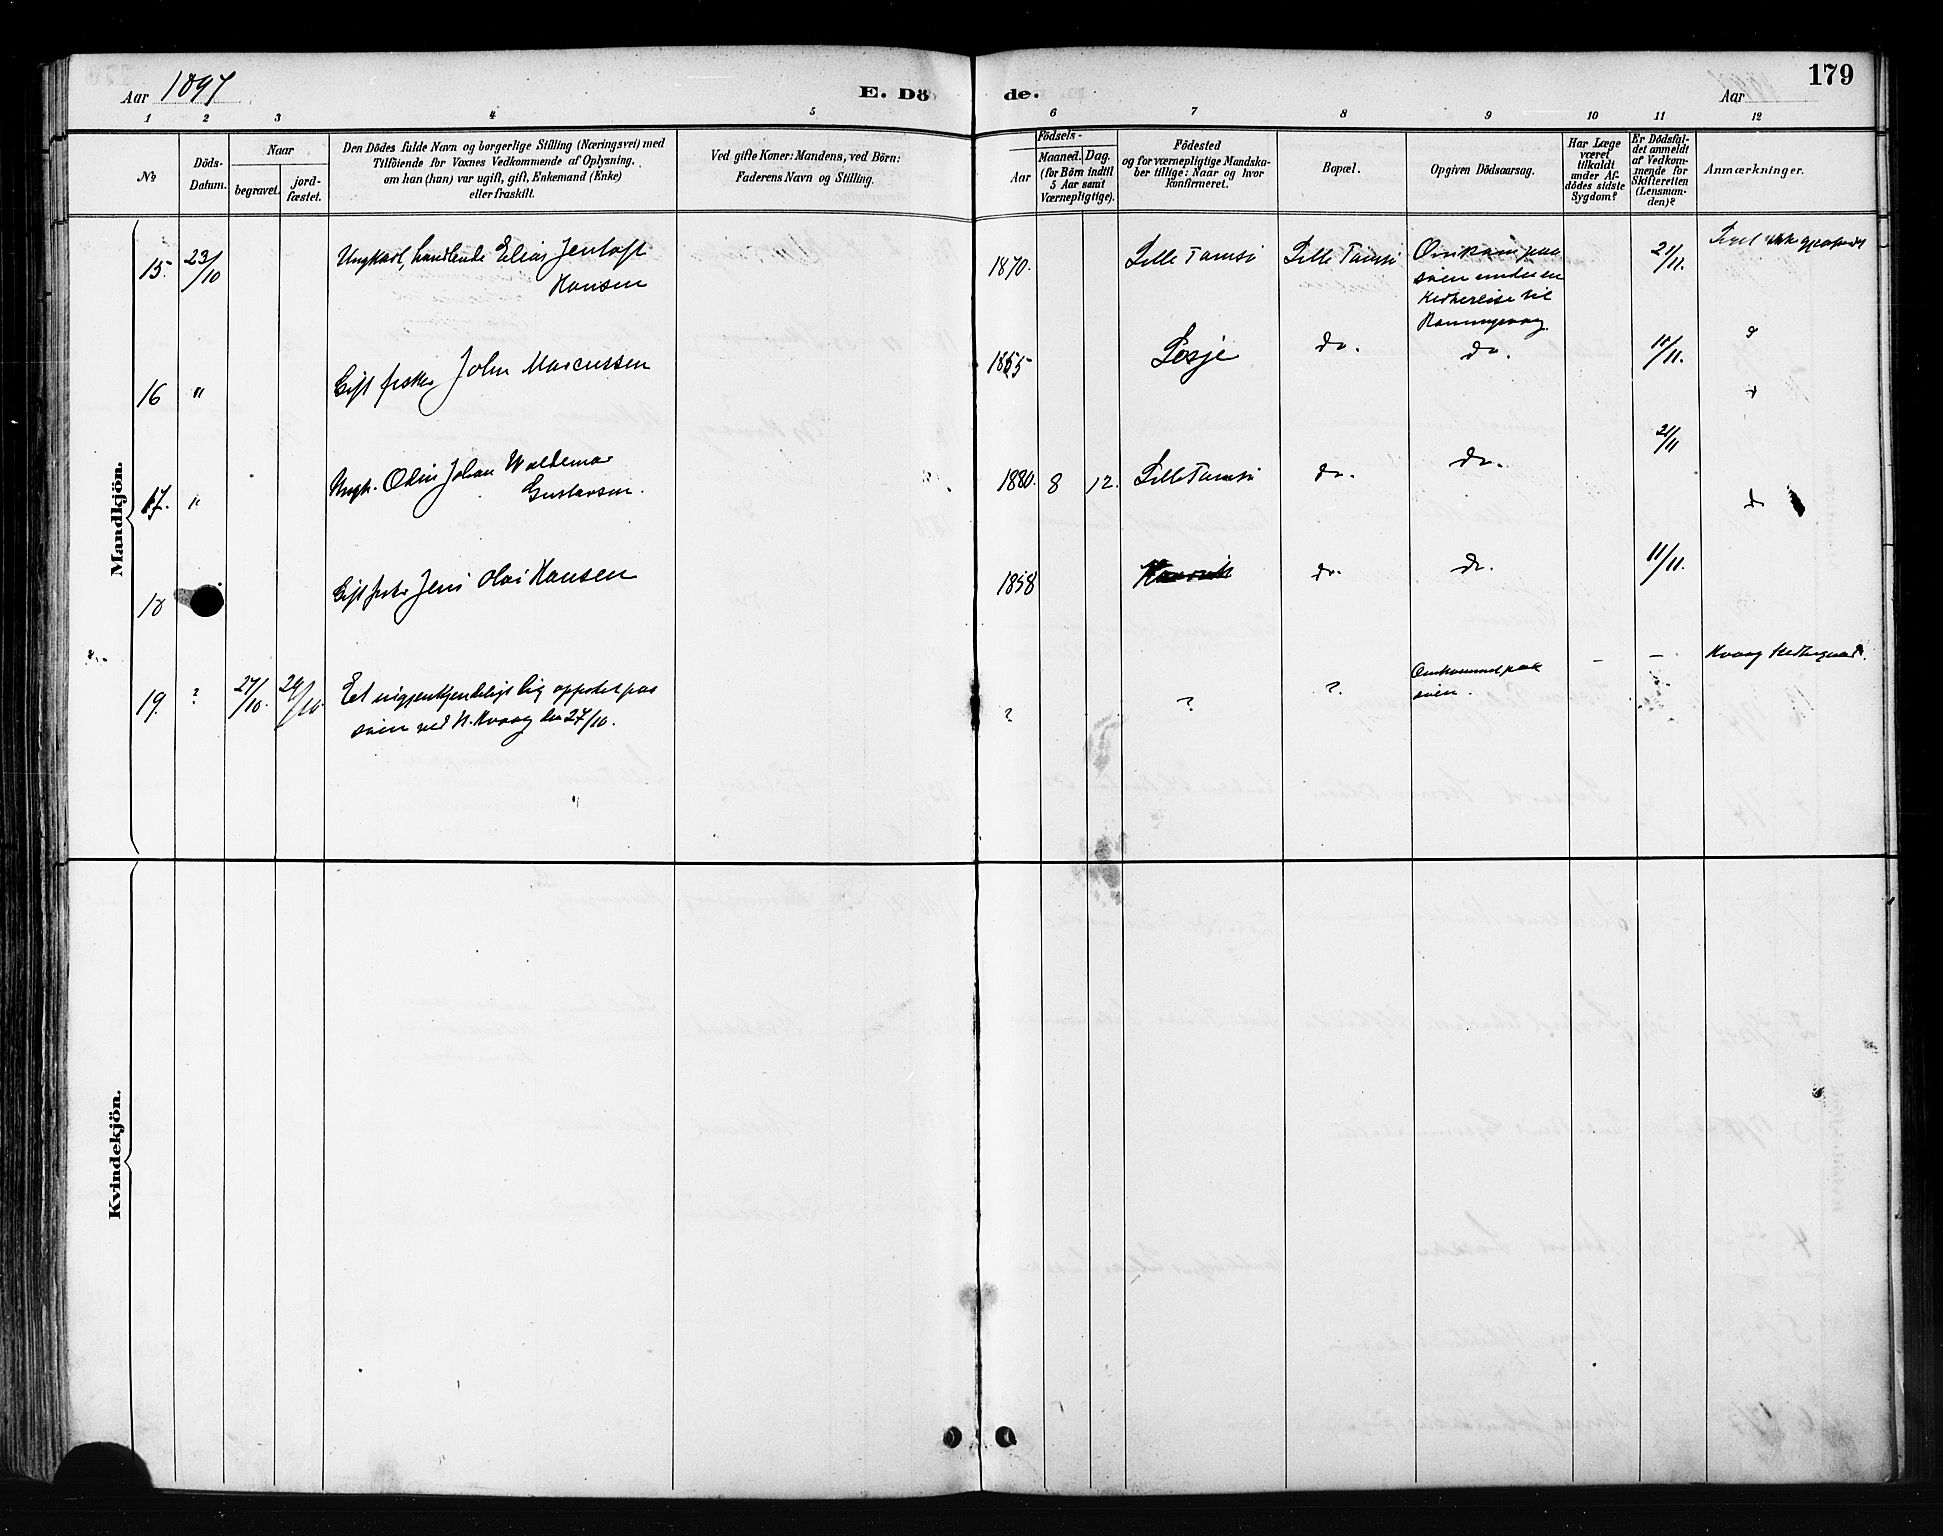 Aar 1897
E. Döde.
Aar
179
1 2 3 4 5 6 7 8 9 10 11 12
No
Döds-
Datum.
Naar
begravet.
jord-
fæstet.
Den Dödes fulde Navn og borgerlige Stilling (Næringsvei) med
Tilföiende for Voxnes Vedkommende af Oplysning,
om han (hun) var ugift, gift, Enkemand (Enke)
eller fraskilt.
Ved gifte Koner: Mandens, ved Börn:
Faderens Navn og Stilling.
Födsels-
Aar
Maaned. Dag.
(for Börn indtil
5 Aar samt
Værnepligtige).
Födested
og for værnepligtige Mandska-
ber tillige: Naar og hvor
konfirmeret.
Bopæl.
Opgiven Dödsaarsag.
Har Læge
været
tilkaldt
under Af-
dödes sidste
Sygdom?
Er Dödsfal-
det anmeldt
af Vedkom-
mende for
Skifteretten
(Lensman-
den)?
Anmærkninger.
Mandkjön.
15. 23/10 Ungkarl, handlende Elias Jentoft
Hansen
1870. Lille Tamsö Lille Tamsö Omkom paa
søen under en
Kirkereise til
Honningsvaag.
21/11.
16 " Gift fisker John Marcussen 1855 do. do. 11/11.
17. " Ungk. Odin Johan Waldemar
Gustavsen.
1880. 8 12. Lille Tamsö do. do. 21/11 do
18 Gift fisker Jens Olai Hansen 1858 do. do. 11/11.
19. ? 27/10. 29/10 Et uigjenkjendeligt Lig opfisket paa
søen ved N. Kvaag den 27/10.
? ? ? Omkommet paa
søen.
– – Kvaag Kirkegaard.
Kvindekjön.